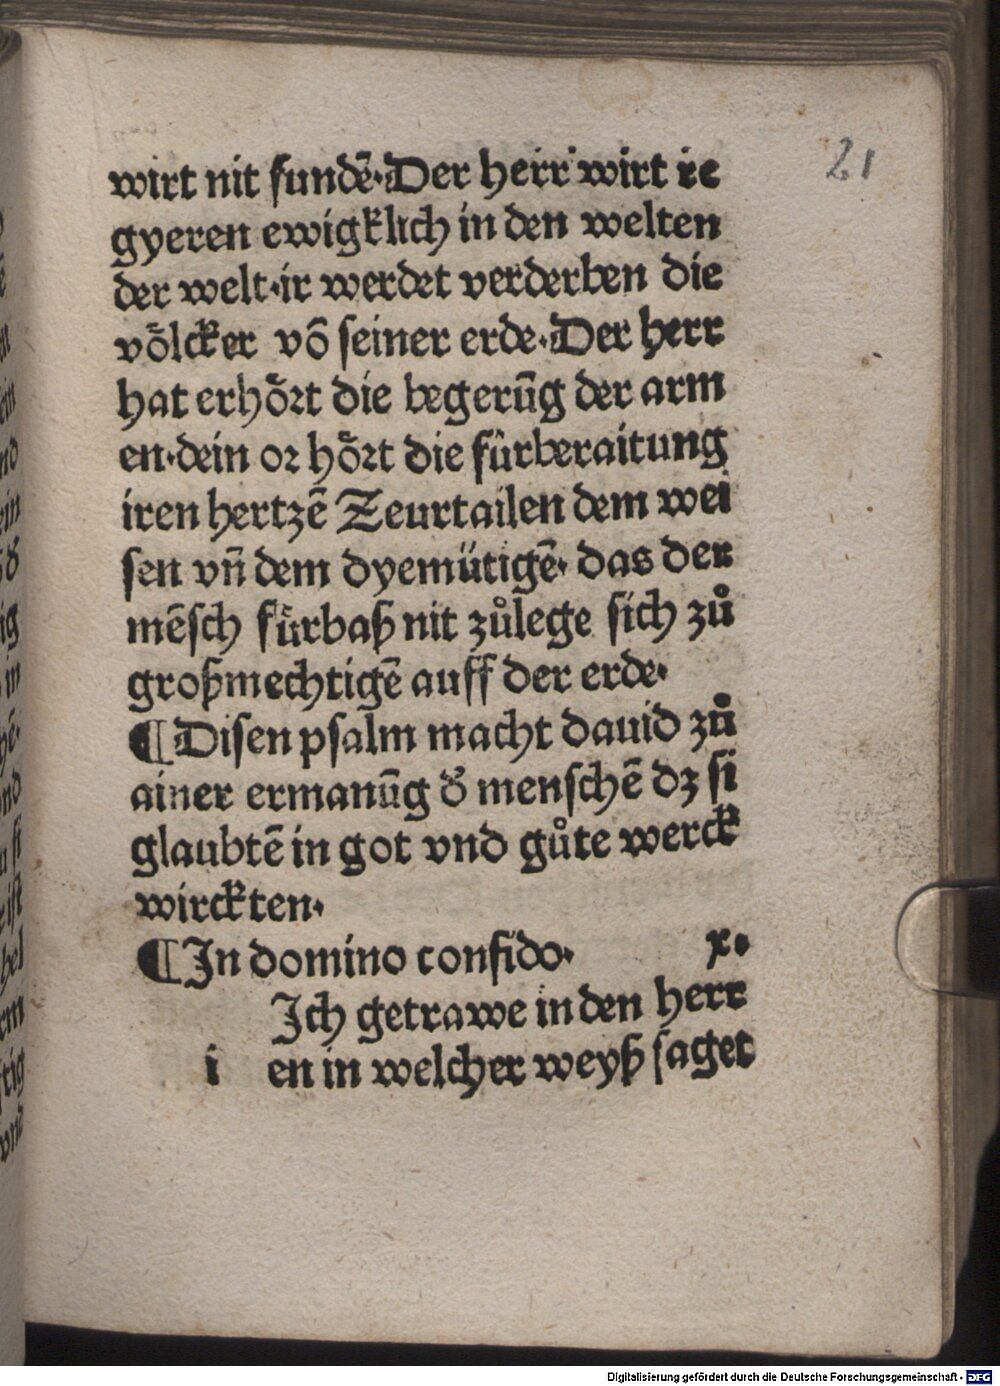 21
wirt nit fundē·Der herr wirt re
gyeren ewigklich in den welten
der welt·ir werdet verderben die
vȫlcker vō seiner erde·Der herr
hat erhoͤrt die begerūg der arm
en·dein or hoͤrt die fürberaitung
iren hertzē Zeurtailen dem wei
sen vñ dem dyemütigē· das der
mēsch fürbaß nit zůlege sich zů
großmechtigē auff der erde·
¶Disen psalm macht dauid zů
ainer ermanūg d̕ menschē dz si
glaubtē in got vnd gůte werck
wirckten·
¶In domino confido· x·
Ich getrawe in den herr
i en in welcher weyß saget
Digitalisierung gefördert durch die Deutsche Forschungsgemeinschaft - DFG